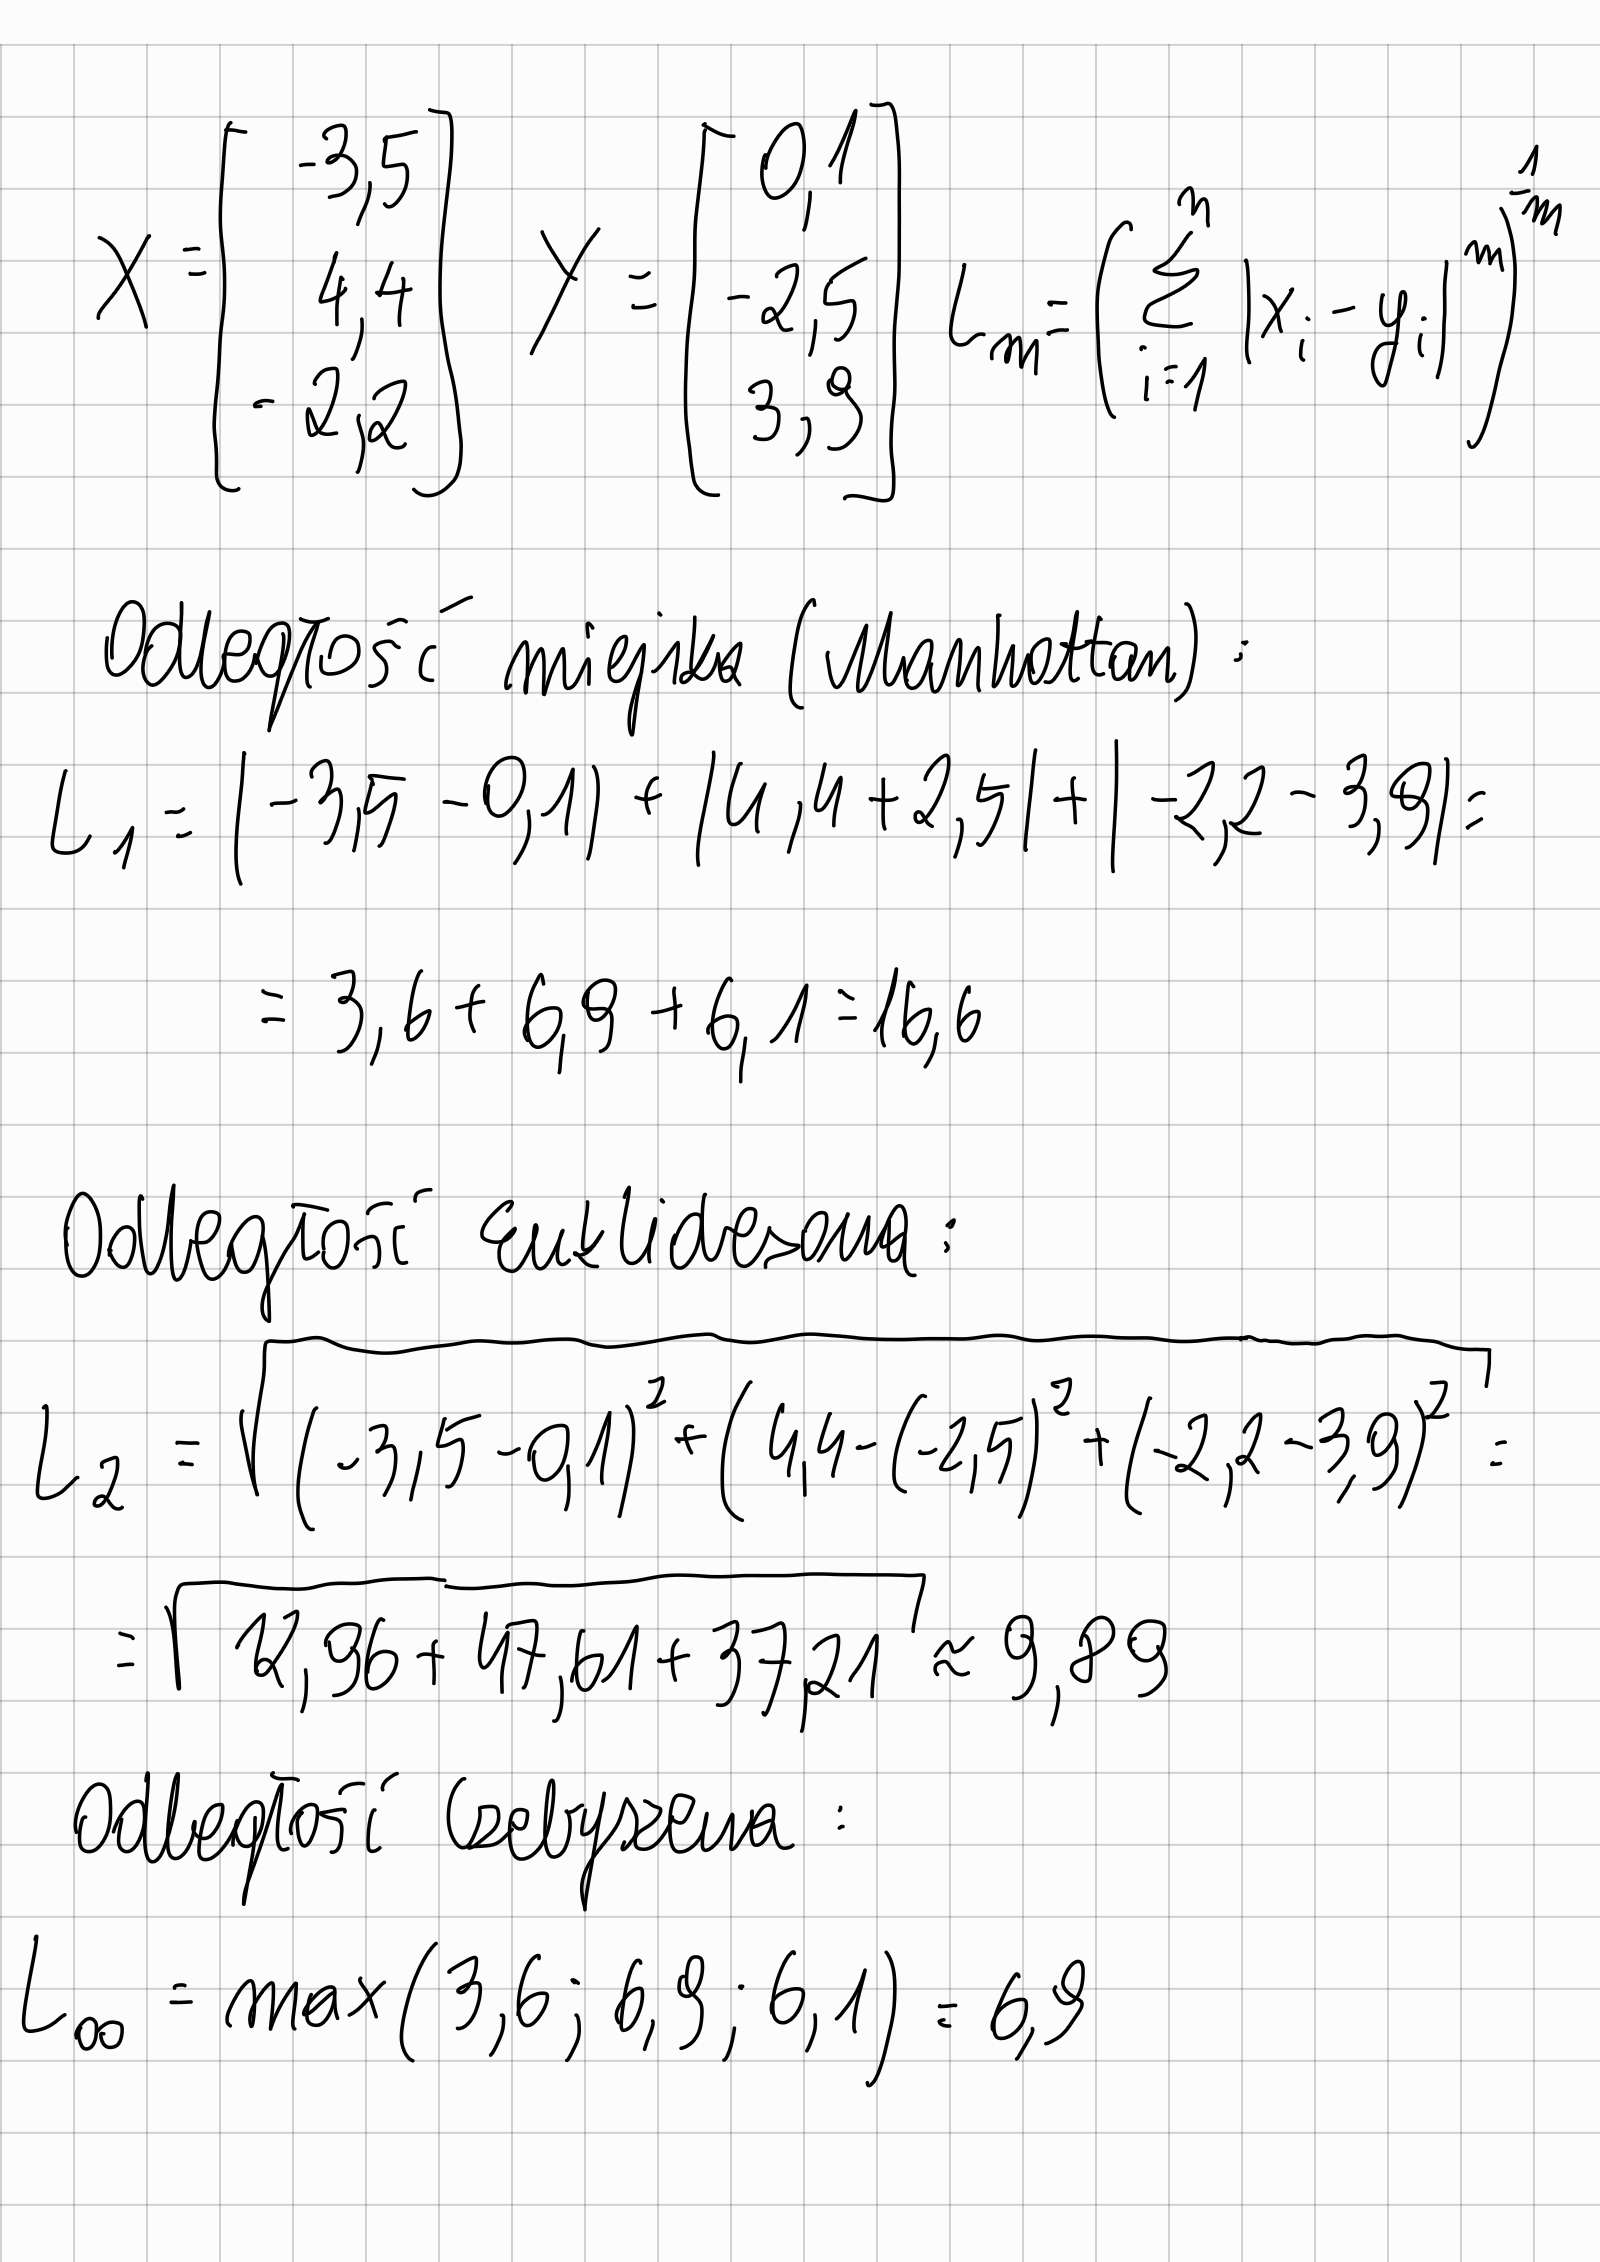 X = [ -3,5 4,4 -2,2 ] Y = [ 0,1 -2,5 3,9 ] L_m = ( ∑_{i=1}^{n} |x_i - y_i|^m )^{1/m}
Odległość miejska (Manhattan):
L_1 = |-3,5 - 0,1| + |4,4 + 2,5| + |-2,2 - 3,9| =
= 3,6 + 6,9 + 6,1 = 16,6
Odległość Euklidesowa:
L_2 = √( (-3,5 - 0,1)^2 + (4,4 - (-2,5)^2 + (-2,2 - 3,9)^2 ) =
= √( 12,96 + 47,61 + 37,21 ) ≈ 9,89
Odległość Czebyszewa:
L_∞ = max(3,6; 6,9; 6,1) = 6,9